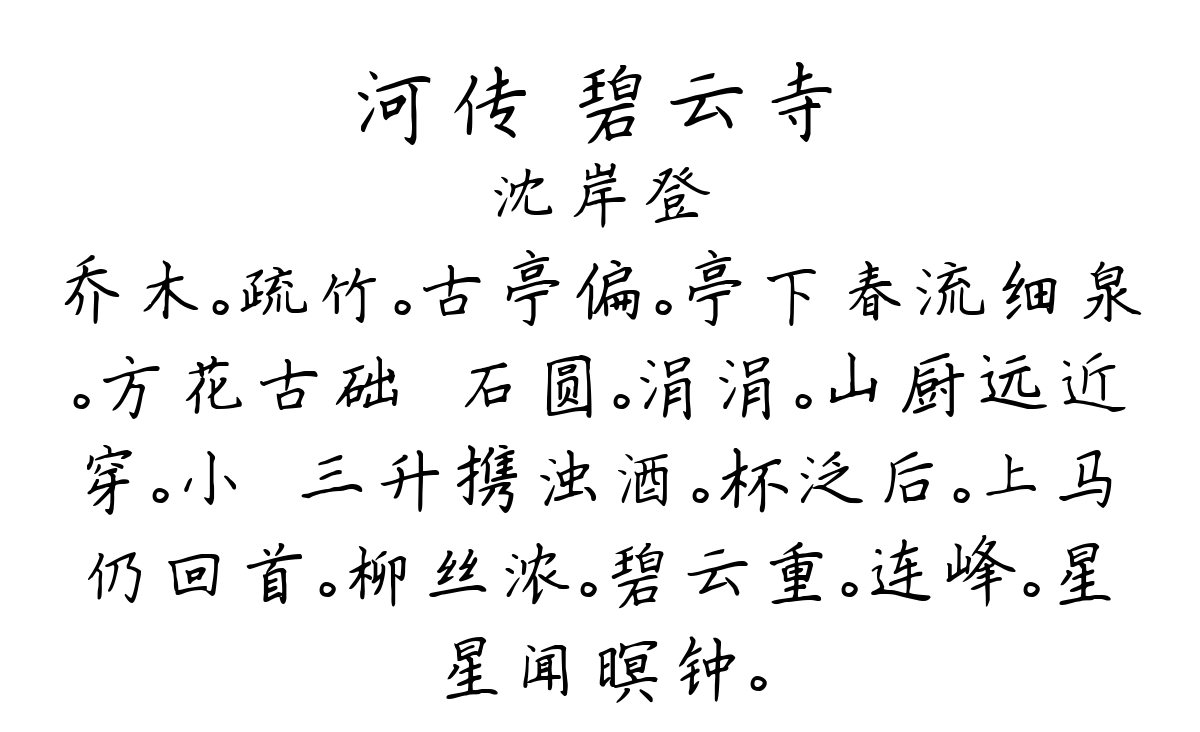 河传 碧云寺
沈岸登
乔木。疏竹。古亭偏。亭下春流细泉
。方花古础 石圆。涓涓。山厨远近
穿。小 三升携浊酒。杯泛后。上马
仍回首。柳丝浓。碧云重。连峰。星
星闻暝钟。